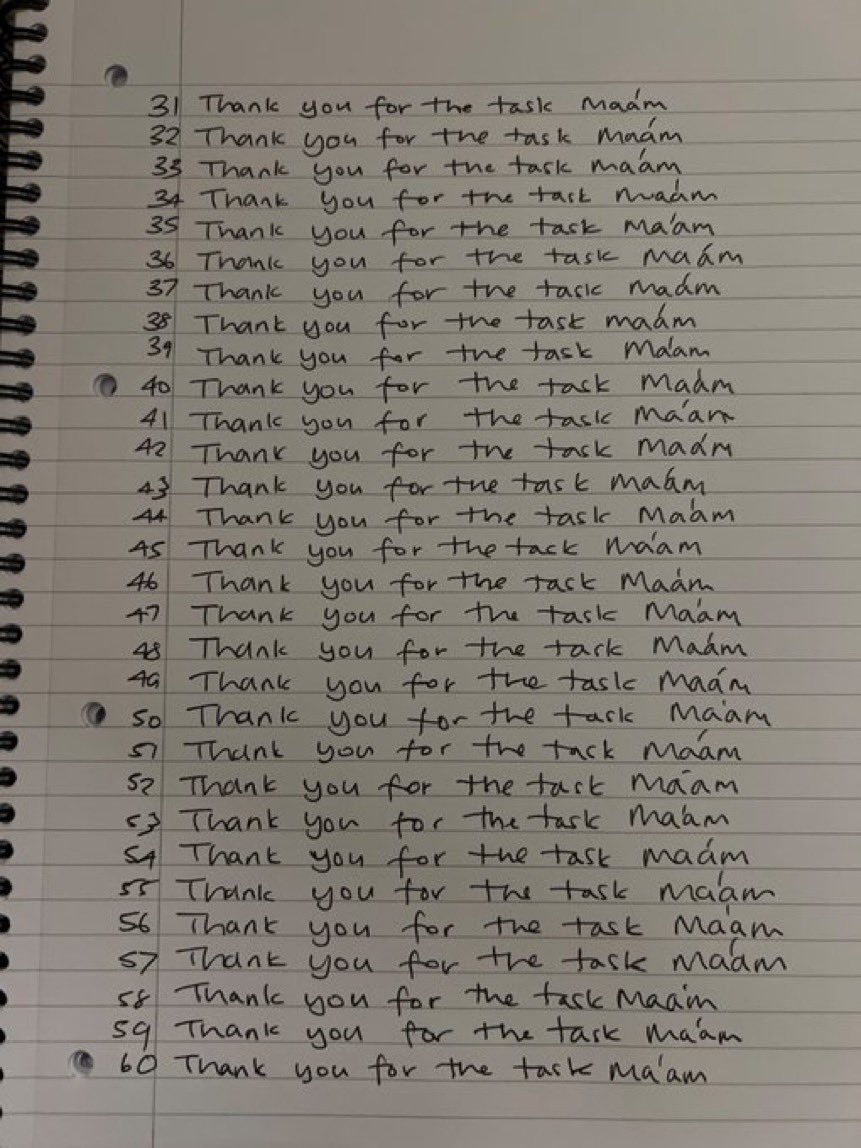 31 Thank you for the task Ma'am
32 Thank you for the task Ma'am
33 Thank you for the task ma'am
34 Thank you for the task ma'am
35 Thank you for the task Ma'am
36 Thank you for the task Ma'am
37 Thank you for the task Ma'am
38 Thank you for the task ma'am
39 Thank you for the task Ma'am
40 Thank you for the task Ma'am
41 Thank you for the task Ma'am
42 Thank you for the task Ma'am
43 Thank you for the task Ma'am
44 Thank you for the task Ma'am
45 Thank you for the task Ma'am
46 Thank you for the task Ma'am
47 Thank you for the task Ma'am
48 Thank you for the task Ma'am
49 Thank you for the task Ma'am
50 Thank you for the task Ma'am
51 Thank you for the task Ma'am
52 Thank you for the task Ma'am
53 Thank you for the task Ma'am
54 Thank you for the task ma'am
55 Thank you for the task Ma'am
56 Thank you for the task Ma'am
57 Thank you for the task Ma'am
58 Thank you for the task Ma'am
59 Thank you for the task Ma'am
60 Thank you for the task Ma'am